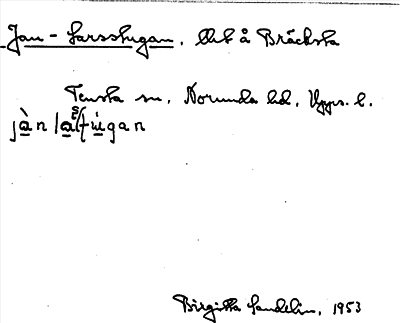 Jan-Larsstugan, Urb å Bräcksta
Tensta sn, Norunda hd, Upps. l.
jàn laʂtú̱gan
Birgitta Sandelin, 1953